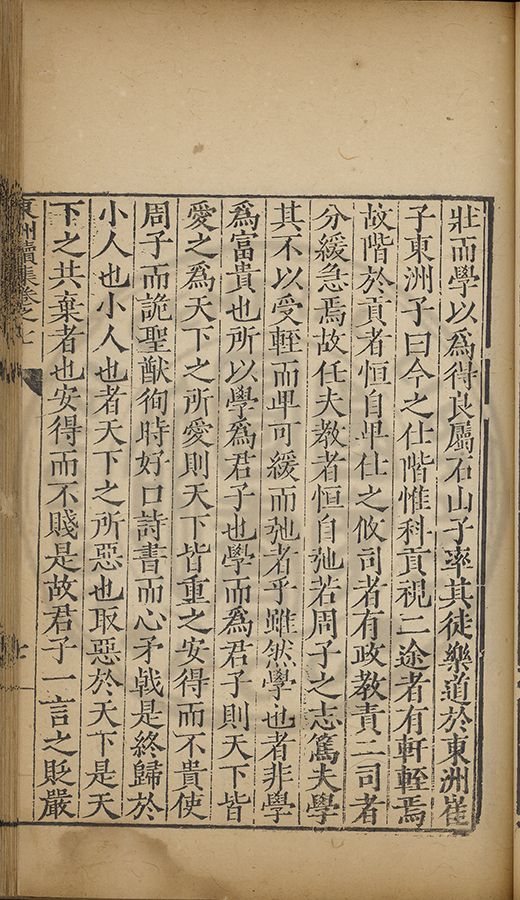 壯而學以為得良屬石山子率其徒樂道於東洲崔
子東洲子曰今之仕階惟科貢視二途者有軒輊焉
故階於貢者恒自卑仕之攸司者有政教責二司者
分緩急焉故任夫教者恒自弛若周子之志篤夫學
其不以受輊而卑可緩而弛者乎雖然學也者非學
為富貴也所以學為君子也學而為君子則天下皆
愛之為天下之所愛則天下皆重之安得而不貴使
周子而詭聖猷徇時好口詩書而心矛戟是終歸於
小人也小人也者天下之所惡也取惡於天下是天
下之共棄者也安得而不賤是故君子一言之貶嚴
東洲續集卷之七